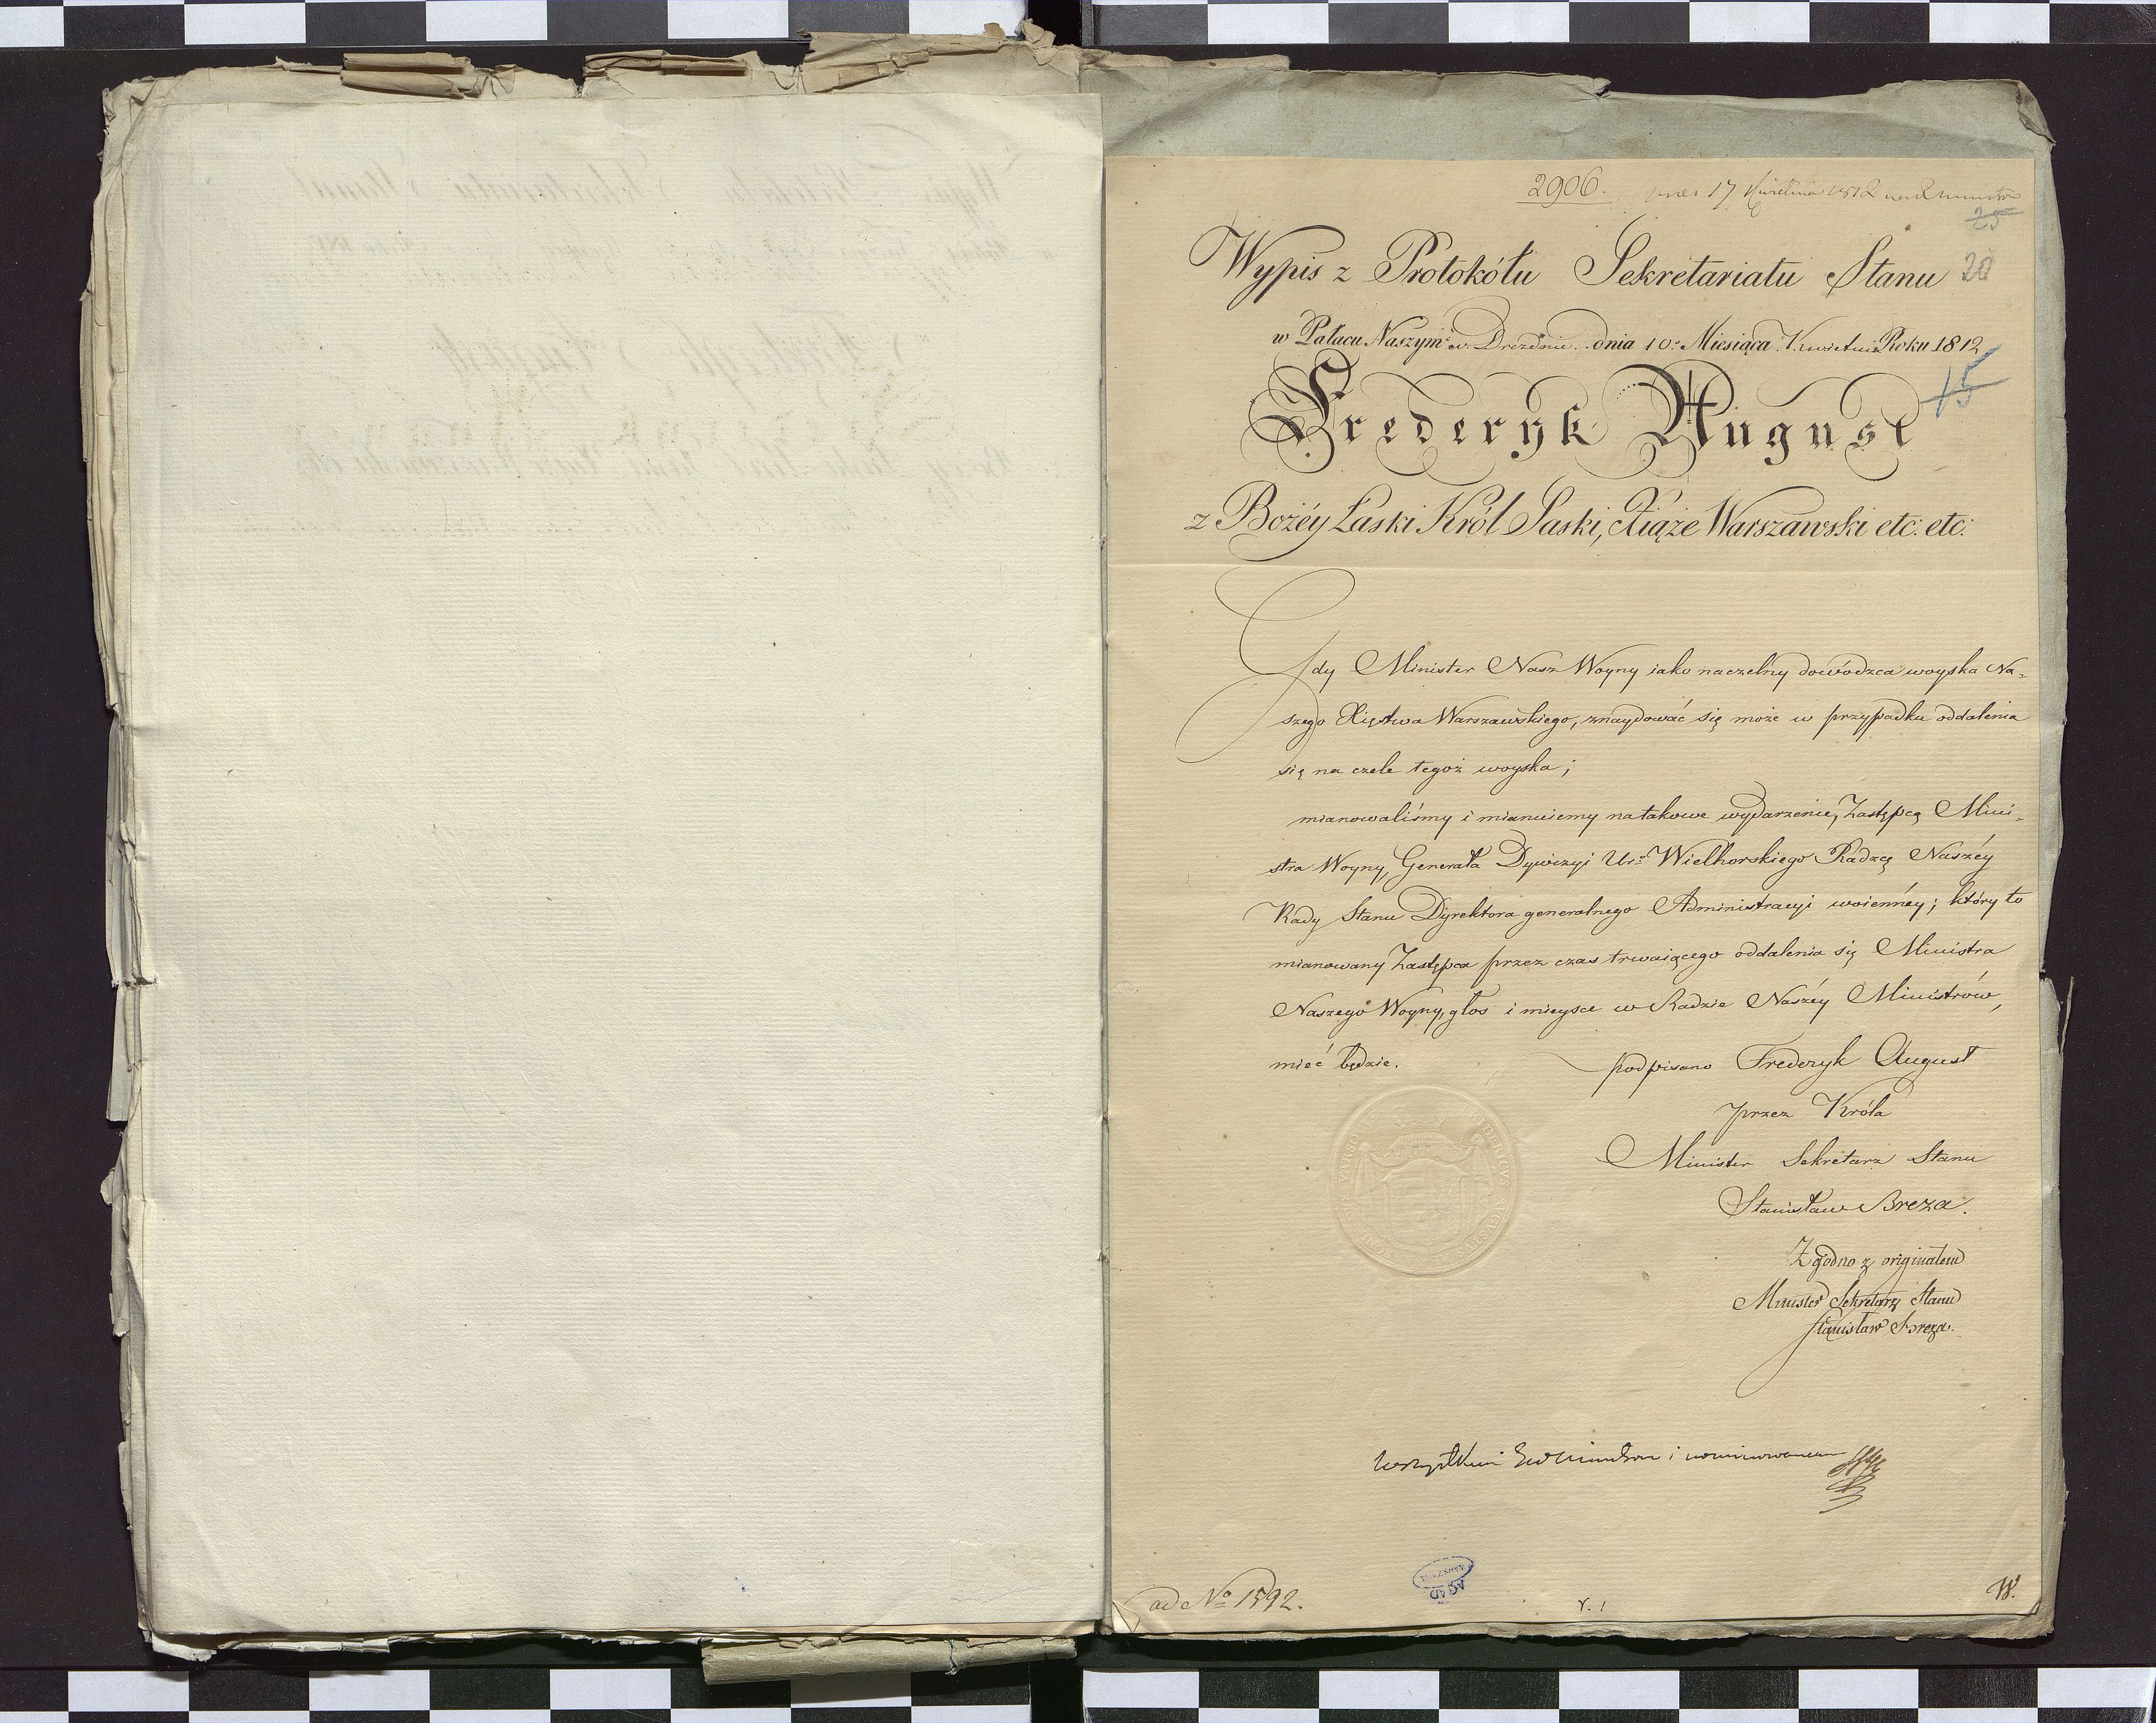 2906.
17 Kwietnia 1812
25
Wypis z Protokółu Sekretariatu Stanu 20
w Pałacu Naszym w Dreźdnie dnia 10. Miesiąca Kwietnia Roku 1812
15
Frederyk August
z Bożéy Łaski Król Saski, Xiąże Warszawski etc: etc:
Gdy Minister Nasz Woyny iako naczelny dowódzca woyska Na=
szego Xięstwa Warszawskiego, znaydować się może w przypadku oddalenia
się na czele tegoż woyska;
mianowaliśmy i mianuiemy na takowe wydarzenie, Zastępcą Mini=
stra Woyny, Generała Dywizyi Ur: Wielhorskiego Radzcę Naszéy
Rady Stanu Dyrektora generalnego Administracyi woiennéy; który to
mianowany Zastępca przez czas trwaiącego oddalenia się Ministra
Naszego Woyny, głos i mieysce w Radzie Naszéy Ministrów,
mieć będzie.
podpisano Frederyk August
przez Króla
Minister Sekretarz Stanu
Stanisław Breza.
Zgodno z originałem
Minister Sekretarz Stanu
Stanisław Breza.
wszystkim i nominowanemu
ad No 1592.
AGAD
WARSZAWA
r. 1
W.